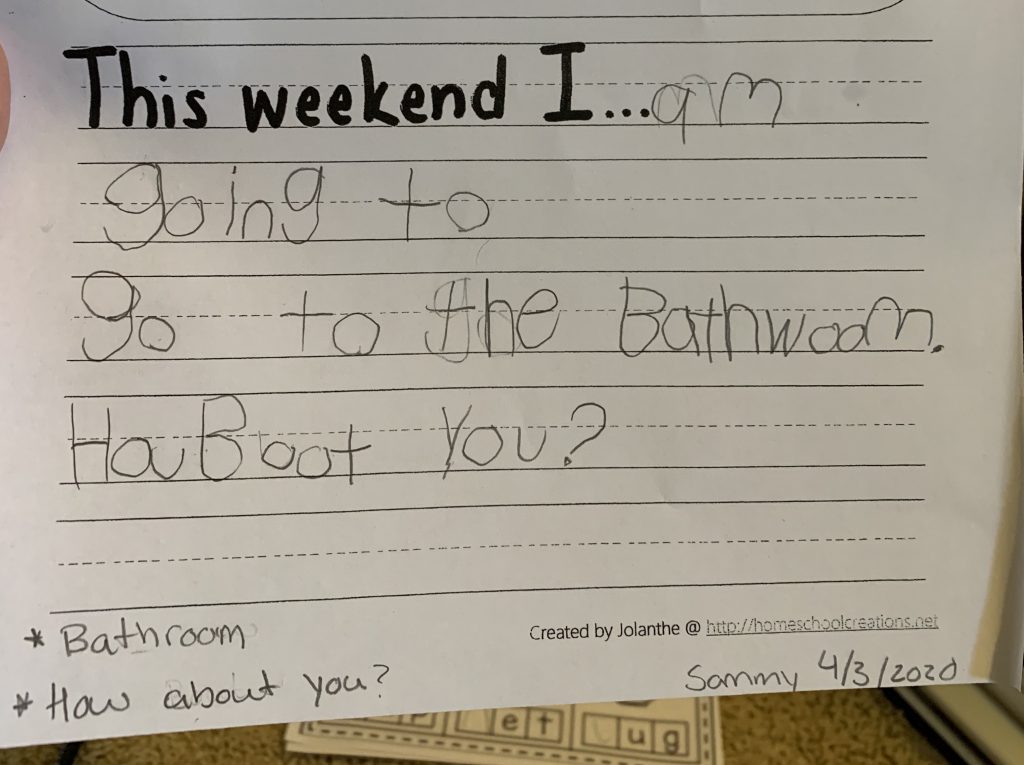 This weekend I...am
going to
go to the Bathwoom.
HouBoot You?
* Bathroom
Created by Jolanthe @ http://homeschoolcreations.net
* How about you?
Sammy 4/3/2020
et
ug